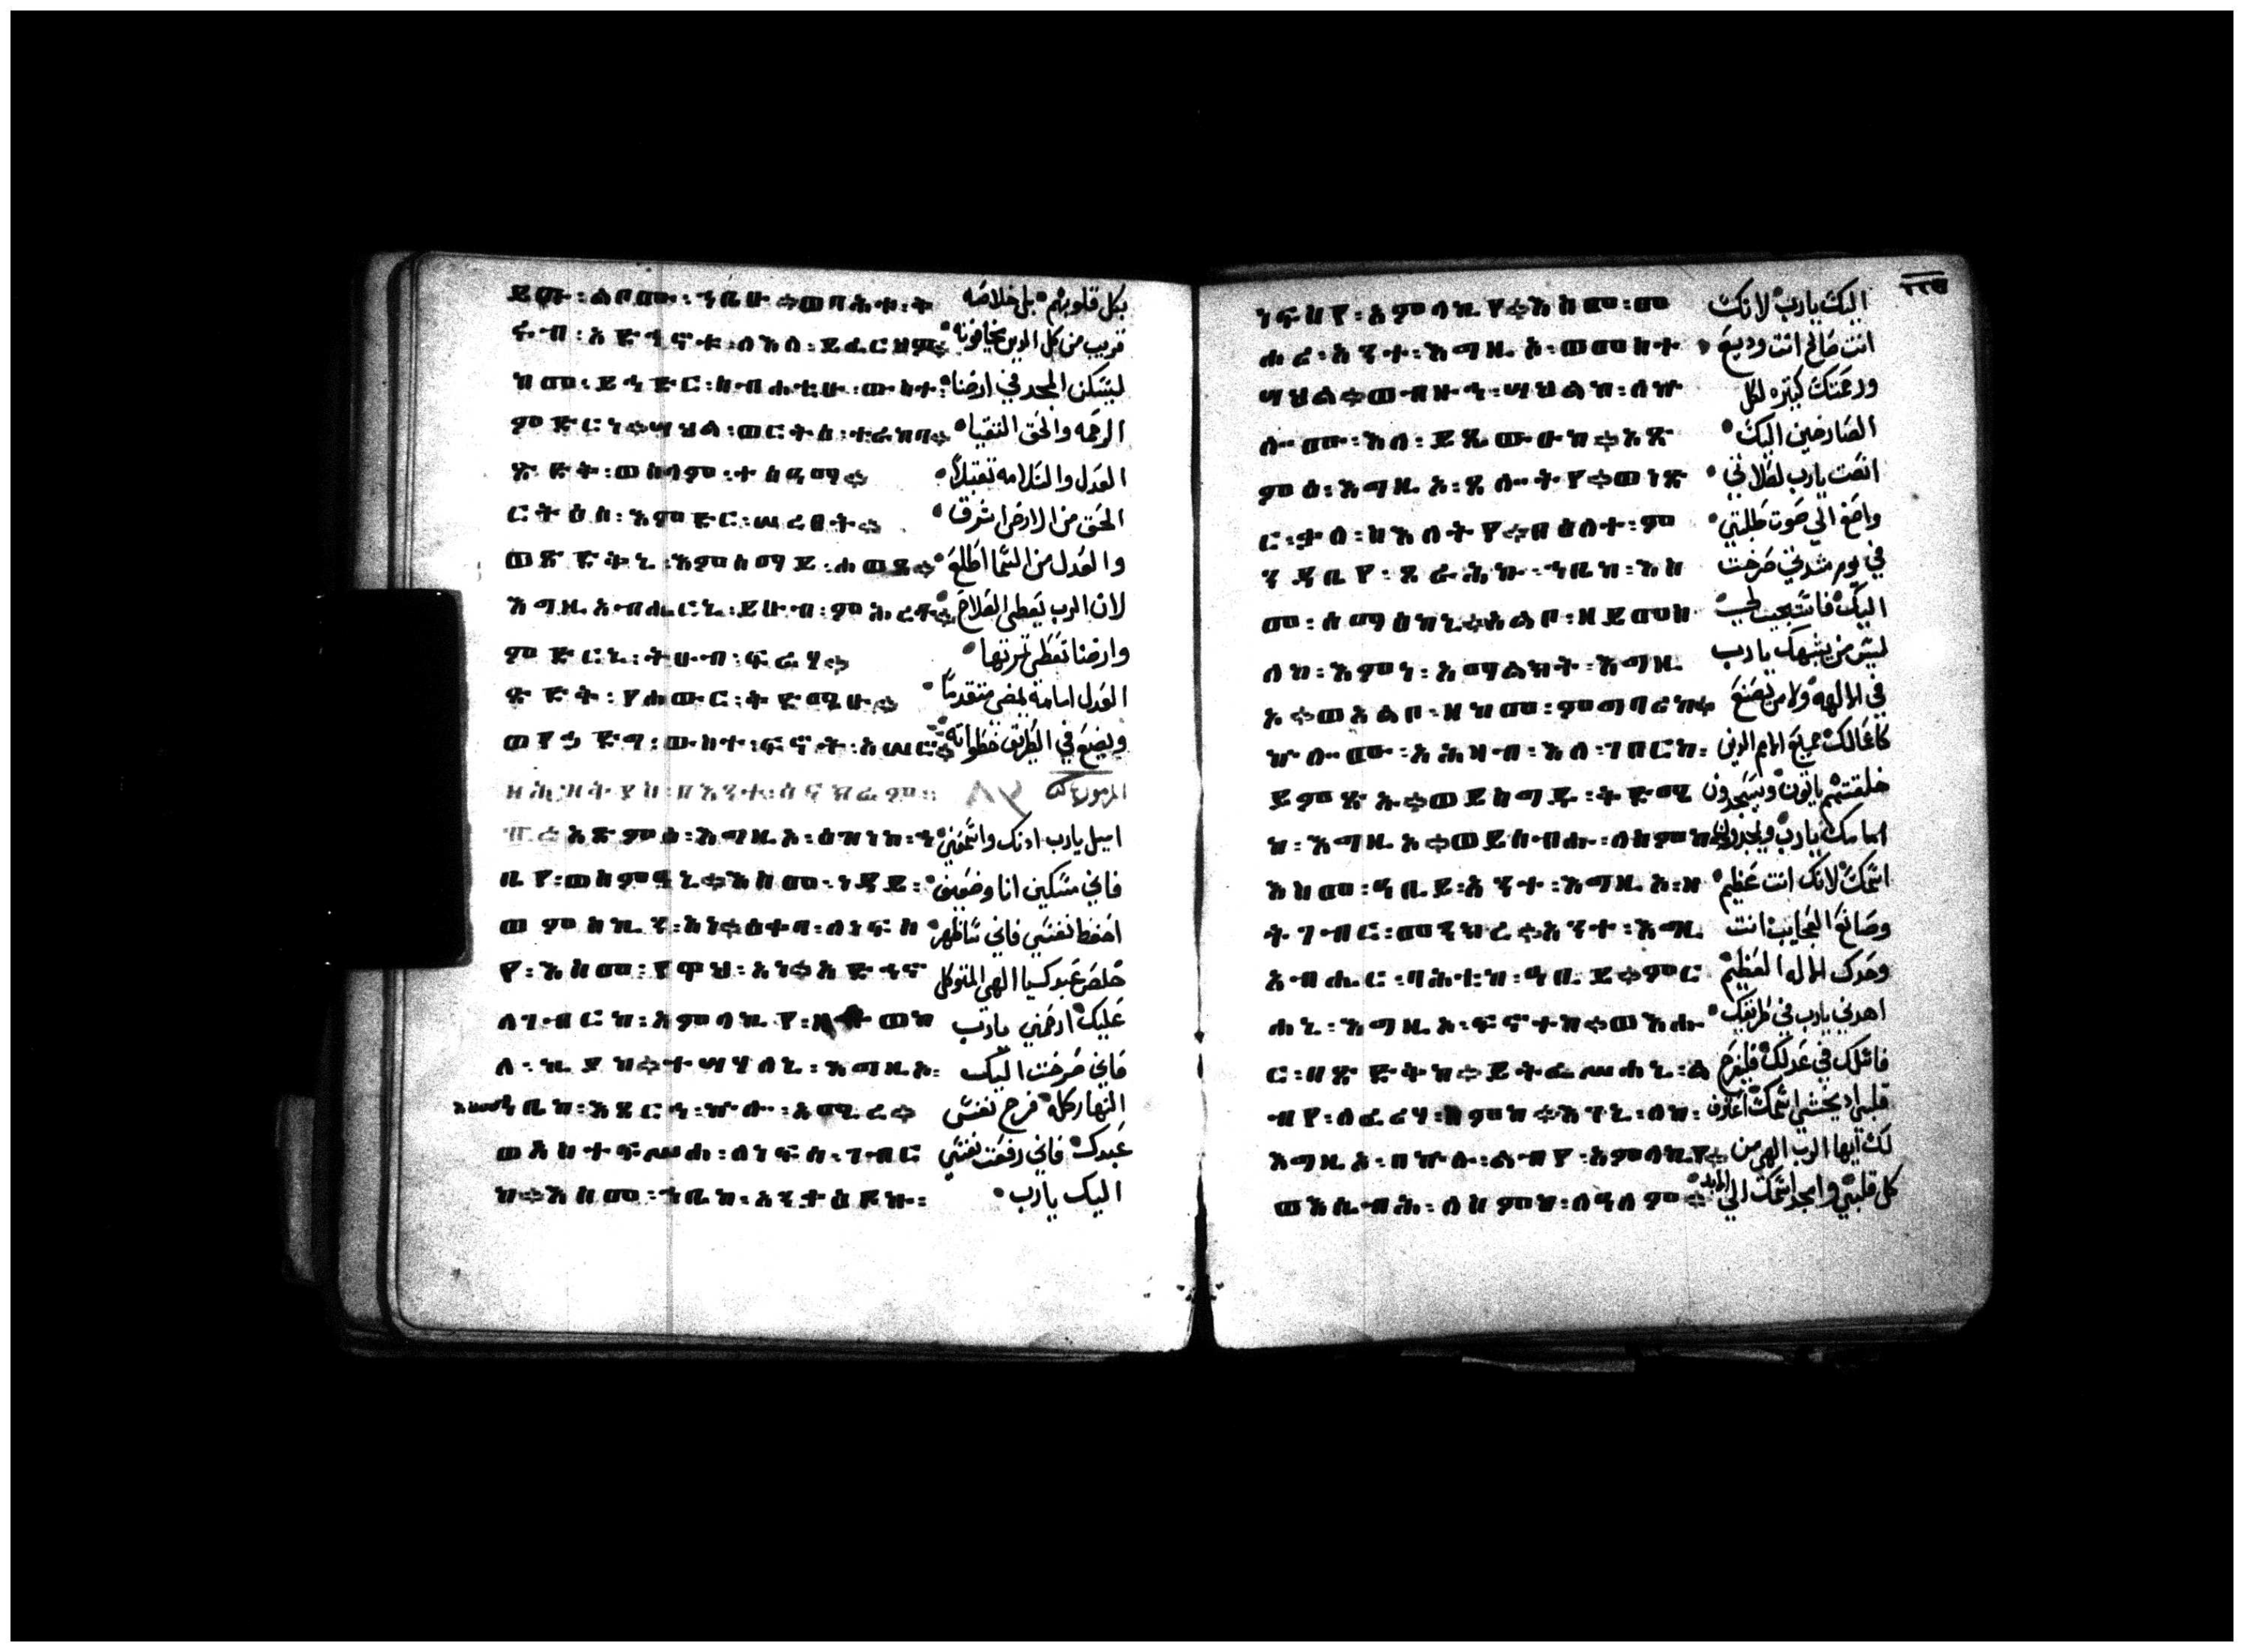 ይዉ፡ልበሙ፡ኀቤሁ፨ወባሕቱ፡ቅ بكل قلوبهم۰ بلى خلاصه
ሩብ፡አድኅኖቱ፡ለእለ፡ይፈርህዎ፨ قريب من كل الدين يخافونه۰
ከመ፡ይኅድር፡ስብሐቲሁ፡ውስተ፡ ليسكن المجد في ارضنا۰
ምድርነ፨ሣህል፡ወርትዕ፡ተራከባ፨ الرحمه والحق التقيا۰
ጽድቅ፡ወሰላም፡ተሰዓማ፨ العدل والسلامه تقبلا۰
ርትዕሰ፡እምድር፡ሠረፀት፨ الحق من الارض اشرق۰
ወጽድቅኒ፡እምሰማይ፡ሐወጸ፨ والعدل من السما اطلع۰
እግዚአብሔርኒ፡ይሁብ፡ምሕረተ፨ لان الرب يعطى الصلاح۰
ምድርኒ፡ትሁብ፡ፍሬሃ፨ وارضنا تعطى ثمرتها۰
ጽድቅ፡የሐውር፡ቅድሜሁ፨ العدل امامه يمضى متقدمًا۰
ወየኃድግ፡ውስተ፡ፍኖት፡አሠሮ፨ ويضع في الطريق خطواته
ዘሕዝቅያስ፡ዘእንተ፡ሰናክሬም፡ المزمور
አጽምዕ፡እግዚኦ፡ዕዝነከ፡ኀ اميل يارب ادنك واسمعني۰
ቤየ፡ወስምዓኒ፨እስመ፡ነዳይ፡ فاني مسكين انا وضعيف۰
ወምስኪን፡አነ፨ዕቀባ፡ለነፍስ احفظ نفسي فاني طاهر۰
የ፡እስመ፡የዋህ፡አነ፨አድኅኖ خلص عبدك يا الهي المتوكل
ለገብርከ፡አምላኪየ፡ዘተወከ عليك۰ ارحمني يارب
ለ፡ኪያከ፨ተሣሃለኒ፡እግዚኦ፡ فاني صرخت اليك
እስመ፡ኀቤከ፡እጸርኅ፡ኵሎ፡አሚረ፨ النهار كله۰ فرح نفس
ወአስተፍሥሓ፡ለነፍሰ፡ገብር عبدك۰ فاني رفعت نفسي
ከ፨እስመ፡ኀቤከ፡አንቃዕዶኩ፡ اليك يارب۰
ነፍስየ፡አምላኪየ፨እስመ፡መ اليك يارب لانك
ሐሪ፡አንተ፡እግዚኦ፡ወመስተ انت صالح انت وديع۰
ሣህል፨ወብዙኅ፡ሣህልከ፡ለኵ ورحمتك كتيره لكل
ሎሙ፡እለ፡ይጼውዑከ፨አጽ الصارخين اليك۰
ምዕ፡እግዚኦ፡ጸሎትየ፨ወነጽ انصت يارب لصلاتي۰
ር፡ቃለ፡ስእለትየ፨በዕለተ፡ም واصغ الي صوت طلبتي۰
ንዳቤየ፡ጸራሕኩ፡ኀቤከ፡እስ في يوم شدتي صرخت
መ፡ሰማዕከኒ፨አልቦ፡ዘይመስ اليك۰ فاستجيب لي۰
ለከ፡እምነ፡አማልክት፡እግዚ ليس من يشبهك يارب
ኦ፨ወአልቦ፡ዘከመ፡ምግባሪከ፨ في الالهه ولا من يصنع
ኵሎሙ፡አሕዛብ፡እለ፡ገበርከ፡ كاعمالك۰ جميع الامم الدين
ይምጽኡ፨ወይሰግዱ፡ቅድሜ خلقتهم ياتون ويسجدون
ከ፡እግዚኦ፨ወይሴብሑ፡ለስምከ፨ امامك يارب۰ ويمجدون
እስመ፡ዓቢይ፡አንተ፡እግዚኦ፡ዘ اسمك۰ لانك انت عظيم۰
ትገብር፡መንክረ፨አንተ፡እግዚ وصانع العجايب۰ انت
አብሔር፡ባሕቲትከ፡ዓቢይ፨ምር وحدك الاله العظيم۰
ሐኒ፡እግዚኦ፡ፍኖተከ፨ወእሑ اهدني يارب في طريقك۰
ር፡በጽድቅከ፨ይትፌሣሕኒ፡ል فاسلك في عدلك۰ فليفرح
ብየ፡ለፈሪሃ፡ስምከ፨እገኒ፡ለከ፡ قلبي اد يخشى اسمك۰ اعترف
እግዚኦ፡በኵሉ፡ልብየ፡አምላኪየ፨ لك ايها الرب الهي من
ወእሴብሕ፡ለስምከ፡ለዓለም፨ كل قلبي وامجد اسمك الي الابد۰